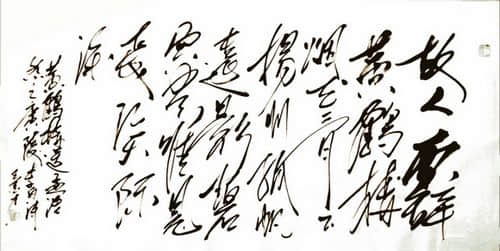 故人西辞
黄鹤楼
烟花三月下
揚州孤帆
远影碧
空尽惟见
长江天际
流
黄鹤楼送孟浩
然之广陵 李白诗